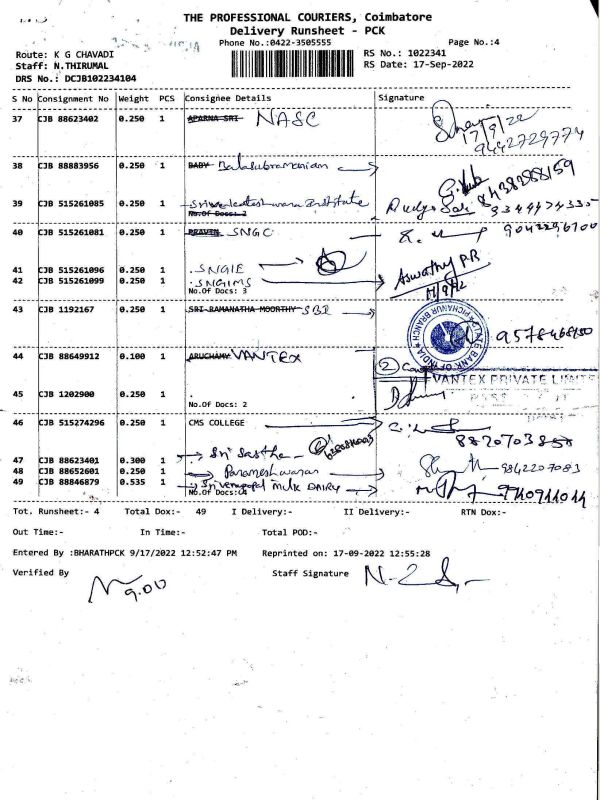 THE PROFESSIONAL COURIERS, Coimbatore
Delivery Runsheet - PCK
Phone No.:0422-3505555
Page No.:4
Route: K G CHAVADI
RS No.: 1022341
Staff: N.THIRUMAL
RS Date: 17-Sep-2022
DRS No.: DCJB102234104
S No Consignment No Weight PCS Consignee Details Signature
37 CJB 88623402 0.250 1 APARNA SRI NASC
17/9/22
9442729774
38 CJB 88883956 0.250 1 BABY Balasubramanian
8438288159
39 CJB 515261085 0.250 1 Srivenkateshwara Institute
No.Of Docs: 2
40 CJB 515261081 0.250 1 PRAVEN SNGC
9042296700
41 CJB 515261096 0.250 1 SNGIE
Aswathy P.R
42 CJB 515261099 0.250 1 SNGIMS
No.Of Docs: 3
43 CJB 1192167 0.250 1 SRI RAMANATHA MOORTHY SBI
STATE BANK OF INDIA
PICHANUR BRANCH
44 CJB 88649912 0.100 1 ARUCHAMY VANTEX
VANTEX PRIVATE LIMITE
45 CJB 1202900 0.250 1
No.Of Docs: 2
46 CJB 515274296 0.250 1 CMS COLLEGE
47 CJB 88623401 0.300 1 Sri Sastha
48 CJB 88652601 0.250 1 Parameshwaran
9842207083
49 CJB 88846879 0.535 1 Srivenugopal milk DAIRY
No.Of Docs:4
Tot. Runsheet:- 4 Total Dox:- 49 I Delivery:- II Delivery:- RTN Dox:-
Out Time:- In Time:- Total POD:-
Entered By :BHARATHPCK 9/17/2022 12:52:47 PM Reprinted on: 17-09-2022 12:55:28
Verified By Staff Signature
9.00